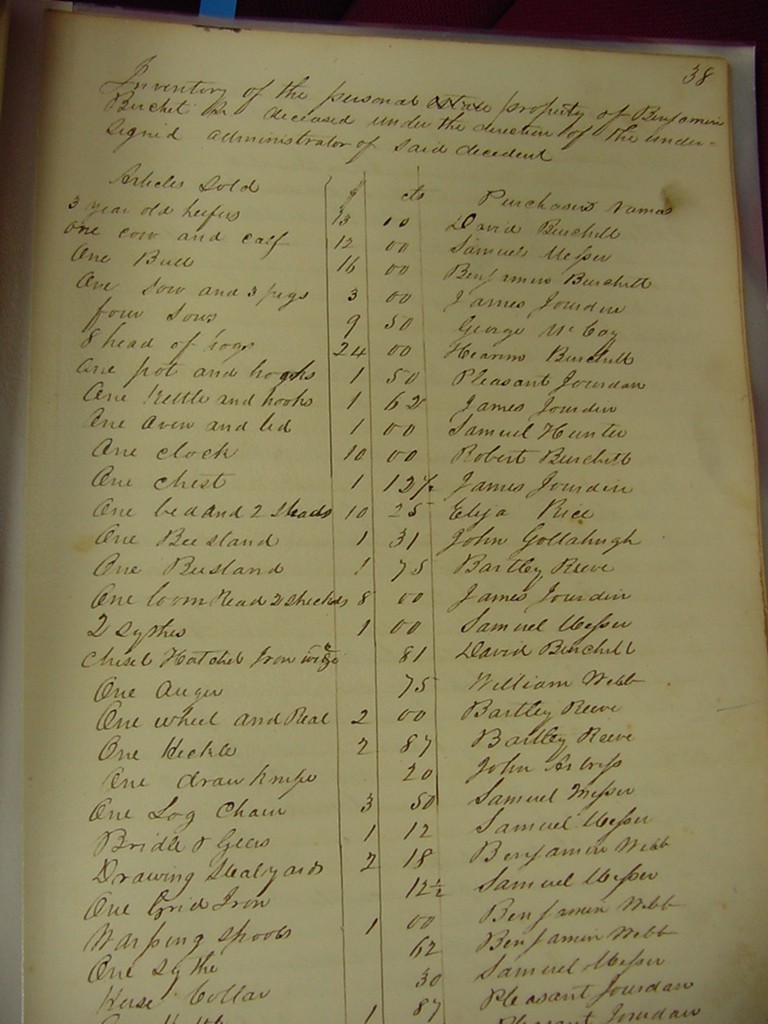 38
Inventory of the personal estate property of Benjamin
Burchet deceased under the direction of the under-
signed administrator of said decedent
Articles Sold $ cts Purchasers Names
3 year old heifers 13 00 David Burchett
One cow and calf 12 00 Samuel Messer
One Bull 16 00 Benjamin Burchett
One Sow and 3 pigs 3 00 James Jourden
four Sows 9 50 George McCoy
8 head of hogs 24 00 Burchett
One pot and hooks 1 50 Pleasant Jourdan
One Kettle and hooks 1 62 James Jourden
One oven and led 1 00 Samuel Hunter
One clock 10 00 Robert Burchett
One Chest 1 12½ James Jourden
One bed and 2 Steads 10 25 Elija Rice
One Bee stand 1 31 John Gollahugh
One Beestand 1 75 Bartley Reeve
One loom Read 2 8 00 James Jourden
2 sythes 1 00 Samuel Messer
Chisel Hatchel Iron wedge 81 David Burchett
One Auger 75 William Webb
One wheel and Real 2 00 Bartley Reeve
One Heckle 2 87 Bartley Reeve
One draw Knife 20 John
One Log Chain 3 50 Samuel Messer
Bridle & Geers 1 12 Samuel Messer
Drawing Stealyards 2 18 Benjamin Webb
One Grid Iron 12½ Samuel Messer
Warping Spools 1 00 Benjamin Webb
One sythe 62 Benjamin Webb
Horse Collar 30 Samuel Messer
One 1 87 Pleasant Jourdan
Pleasant Jourdan